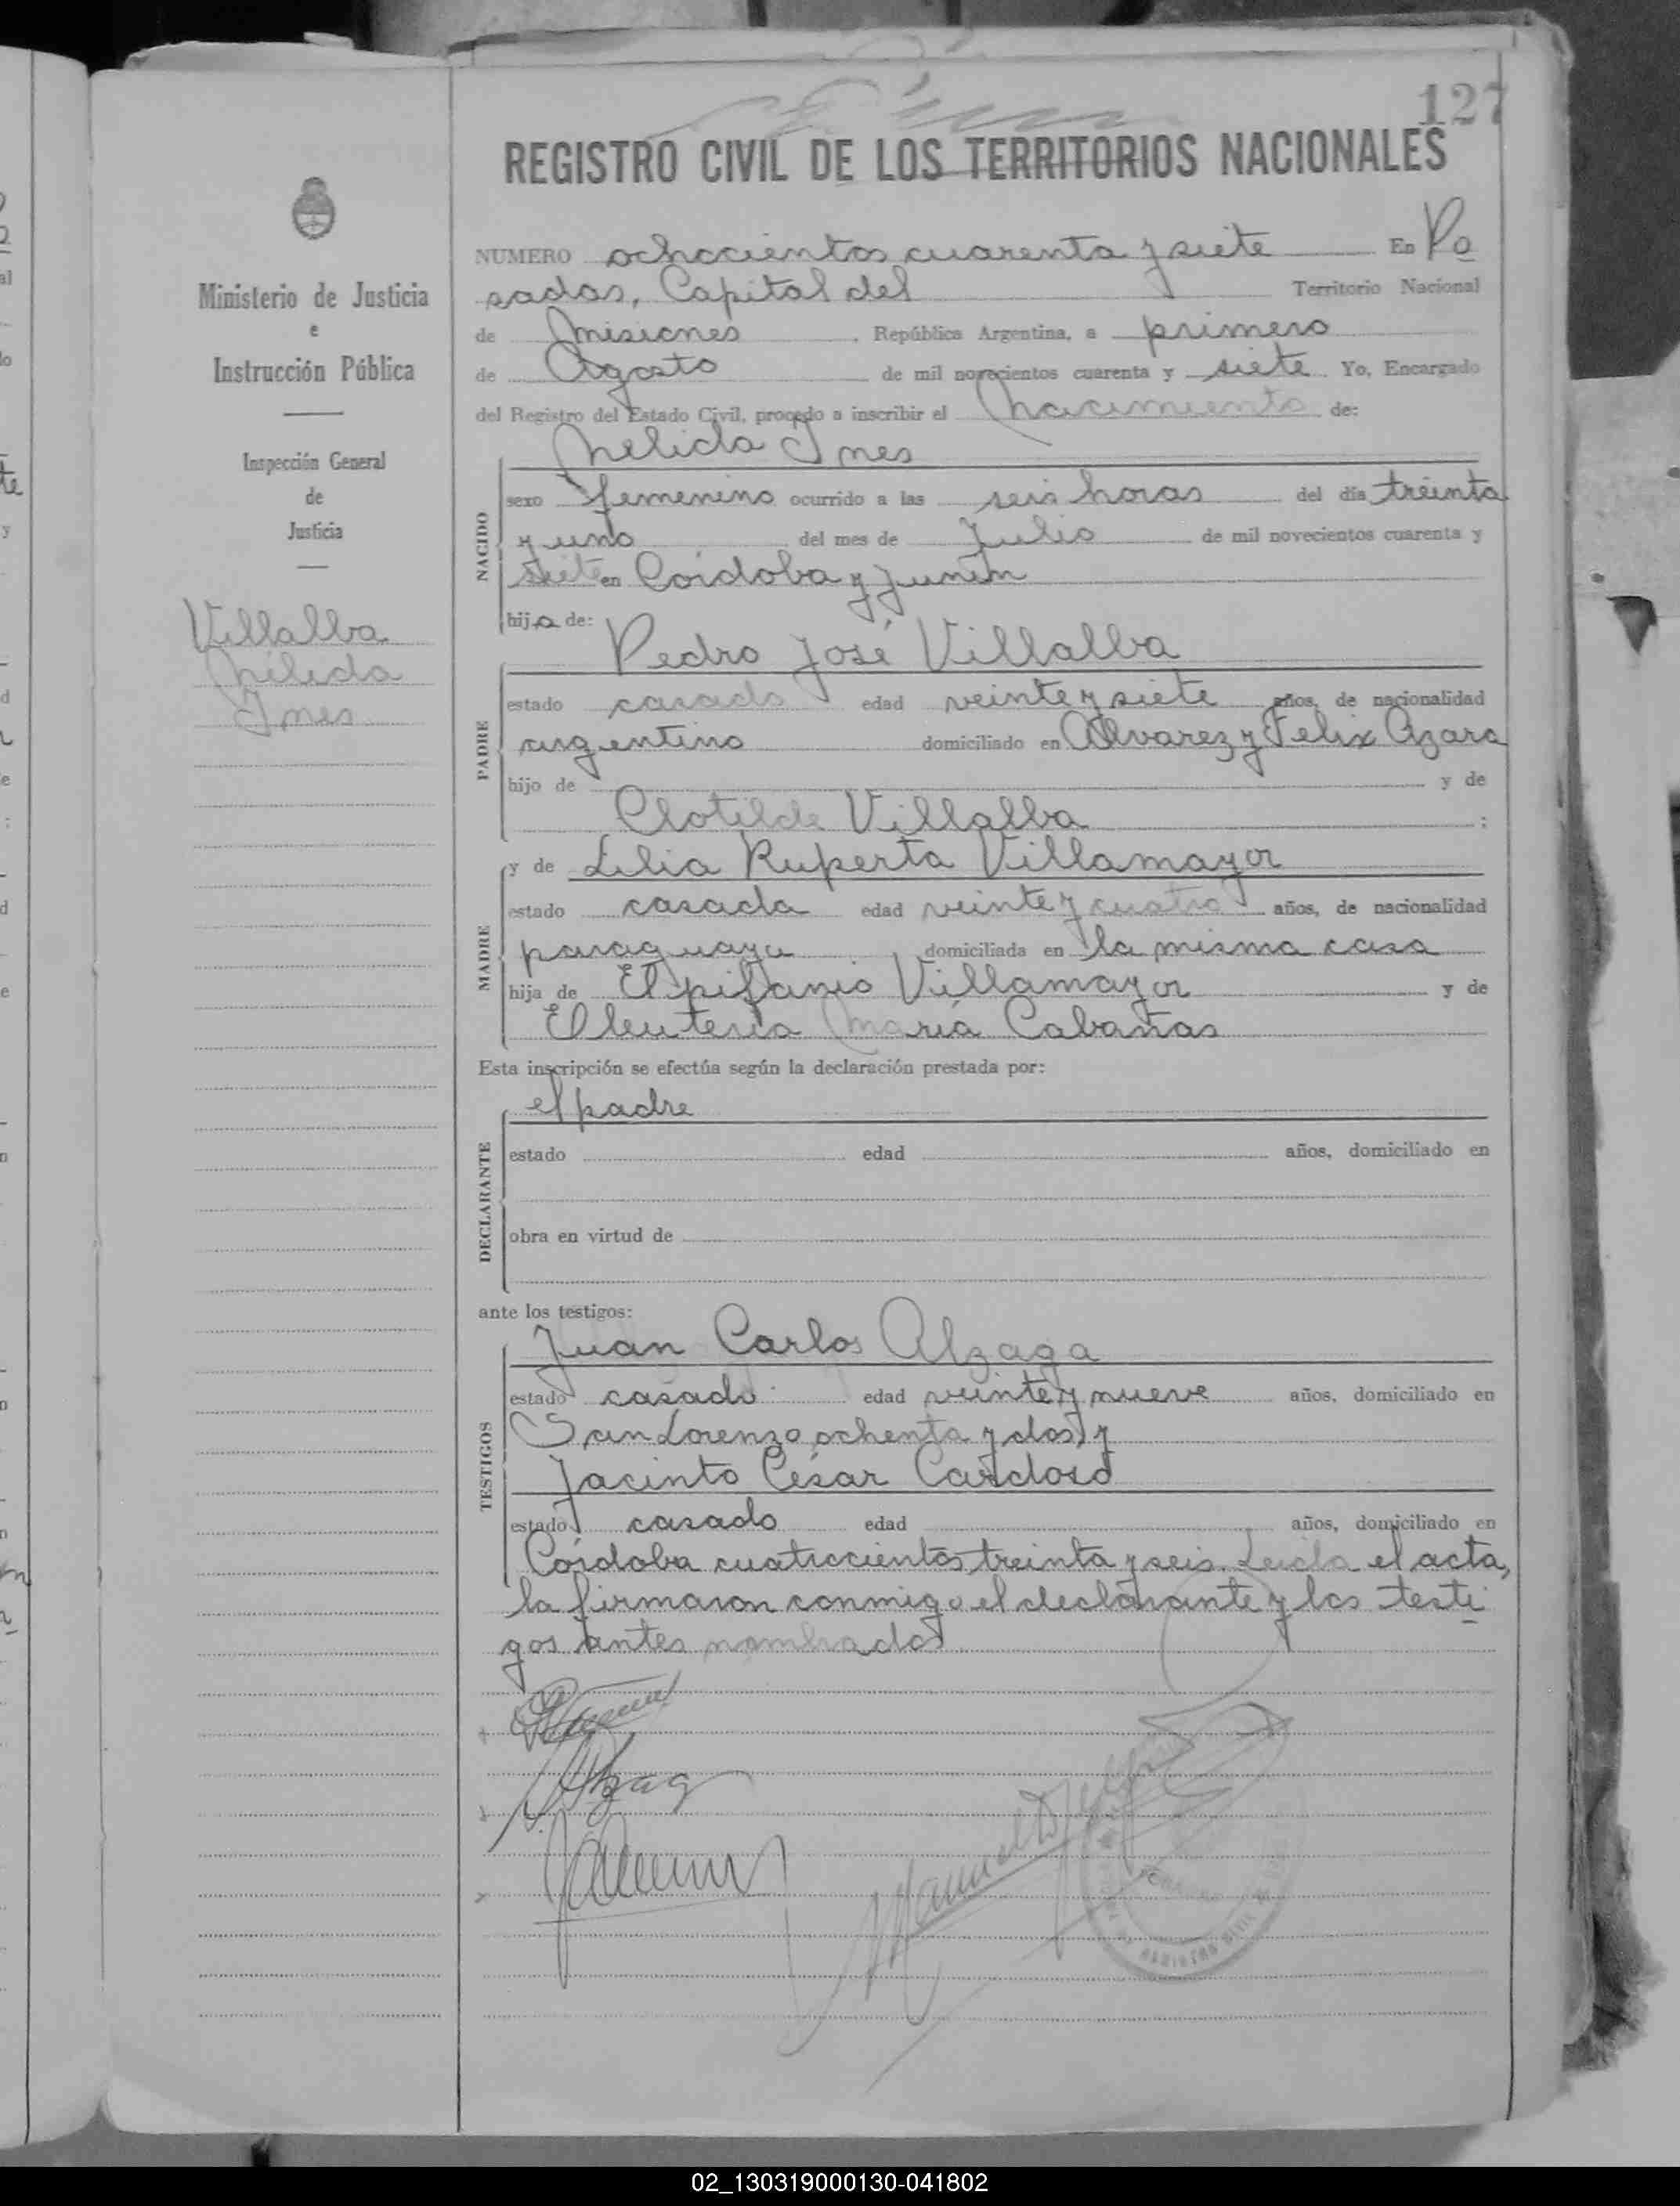 127
REGISTRO CIVIL DE LOS TERRITORIOS NACIONALES
Ministerio de Justicia
e
Instrucción Pública
Inspección General
de
Justicia
Villalba
Nélida
Ines
NUMERO ochocientos cuarenta y siete En Po
sadas, Capital del Territorio Nacional
de Misiones, República Argentina, a primero
de Agosto de mil novecientos cuarenta y siete Yo, Encargado
del Registro del Estado Civil, procedo a inscribir el Nacimiento de:
Nelida Ines
NACIDO
sexo femenino ocurrido a las seis horas del día treinta
y uno del mes de Julio de mil novecientos cuarenta y
siete en Córdoba y Junín
hija de:
Pedro José Villalba
PADRE
estado casado edad veinte y siete años, de nacionalidad
argentino domiciliado en Alvarez y Felix Azara
hijo de y de
Clotilde Villalba ;
y de Lilia Ruperta Villamayor
MADRE
estado casada edad veinte y cuatro años, de nacionalidad
paraguaya domiciliada en la misma casa
hija de Elpifanio Villamayor y de
Eleuteria María Cabañas
Esta inscripción se efectúa según la declaración prestada por:
el padre
DECLARANTE
estado edad años, domiciliado en
obra en virtud de
ante los testigos:
Juan Carlos Alzaga
TESTIGOS
estado casado edad veinte y nueve años, domiciliado en
San Lorenzo ochenta y dos, y
Jacinto César Cardozo
estado casado edad años, domiciliado en
Córdoba cuatrocientos treinta y seis. Leida el acta,
la firmaron conmigo el declarante y los testi
gos antes nombrados
02_130319000130-041802